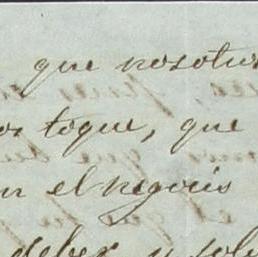 que nosotros
os toque, que
en el negocio
deber y solu